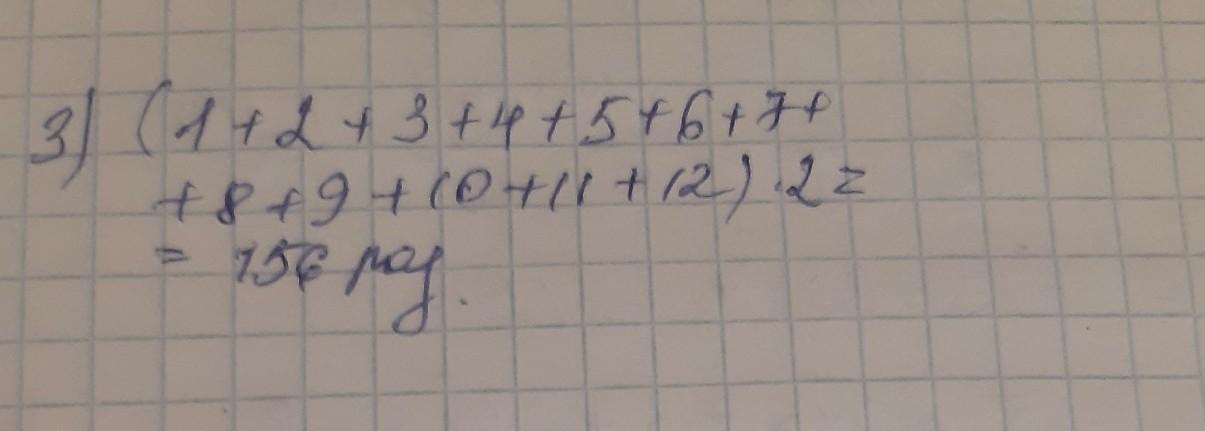 3) (1+2+3+4+5+6+7+
+8+9+10+11+12)·2=
= 156 раз.